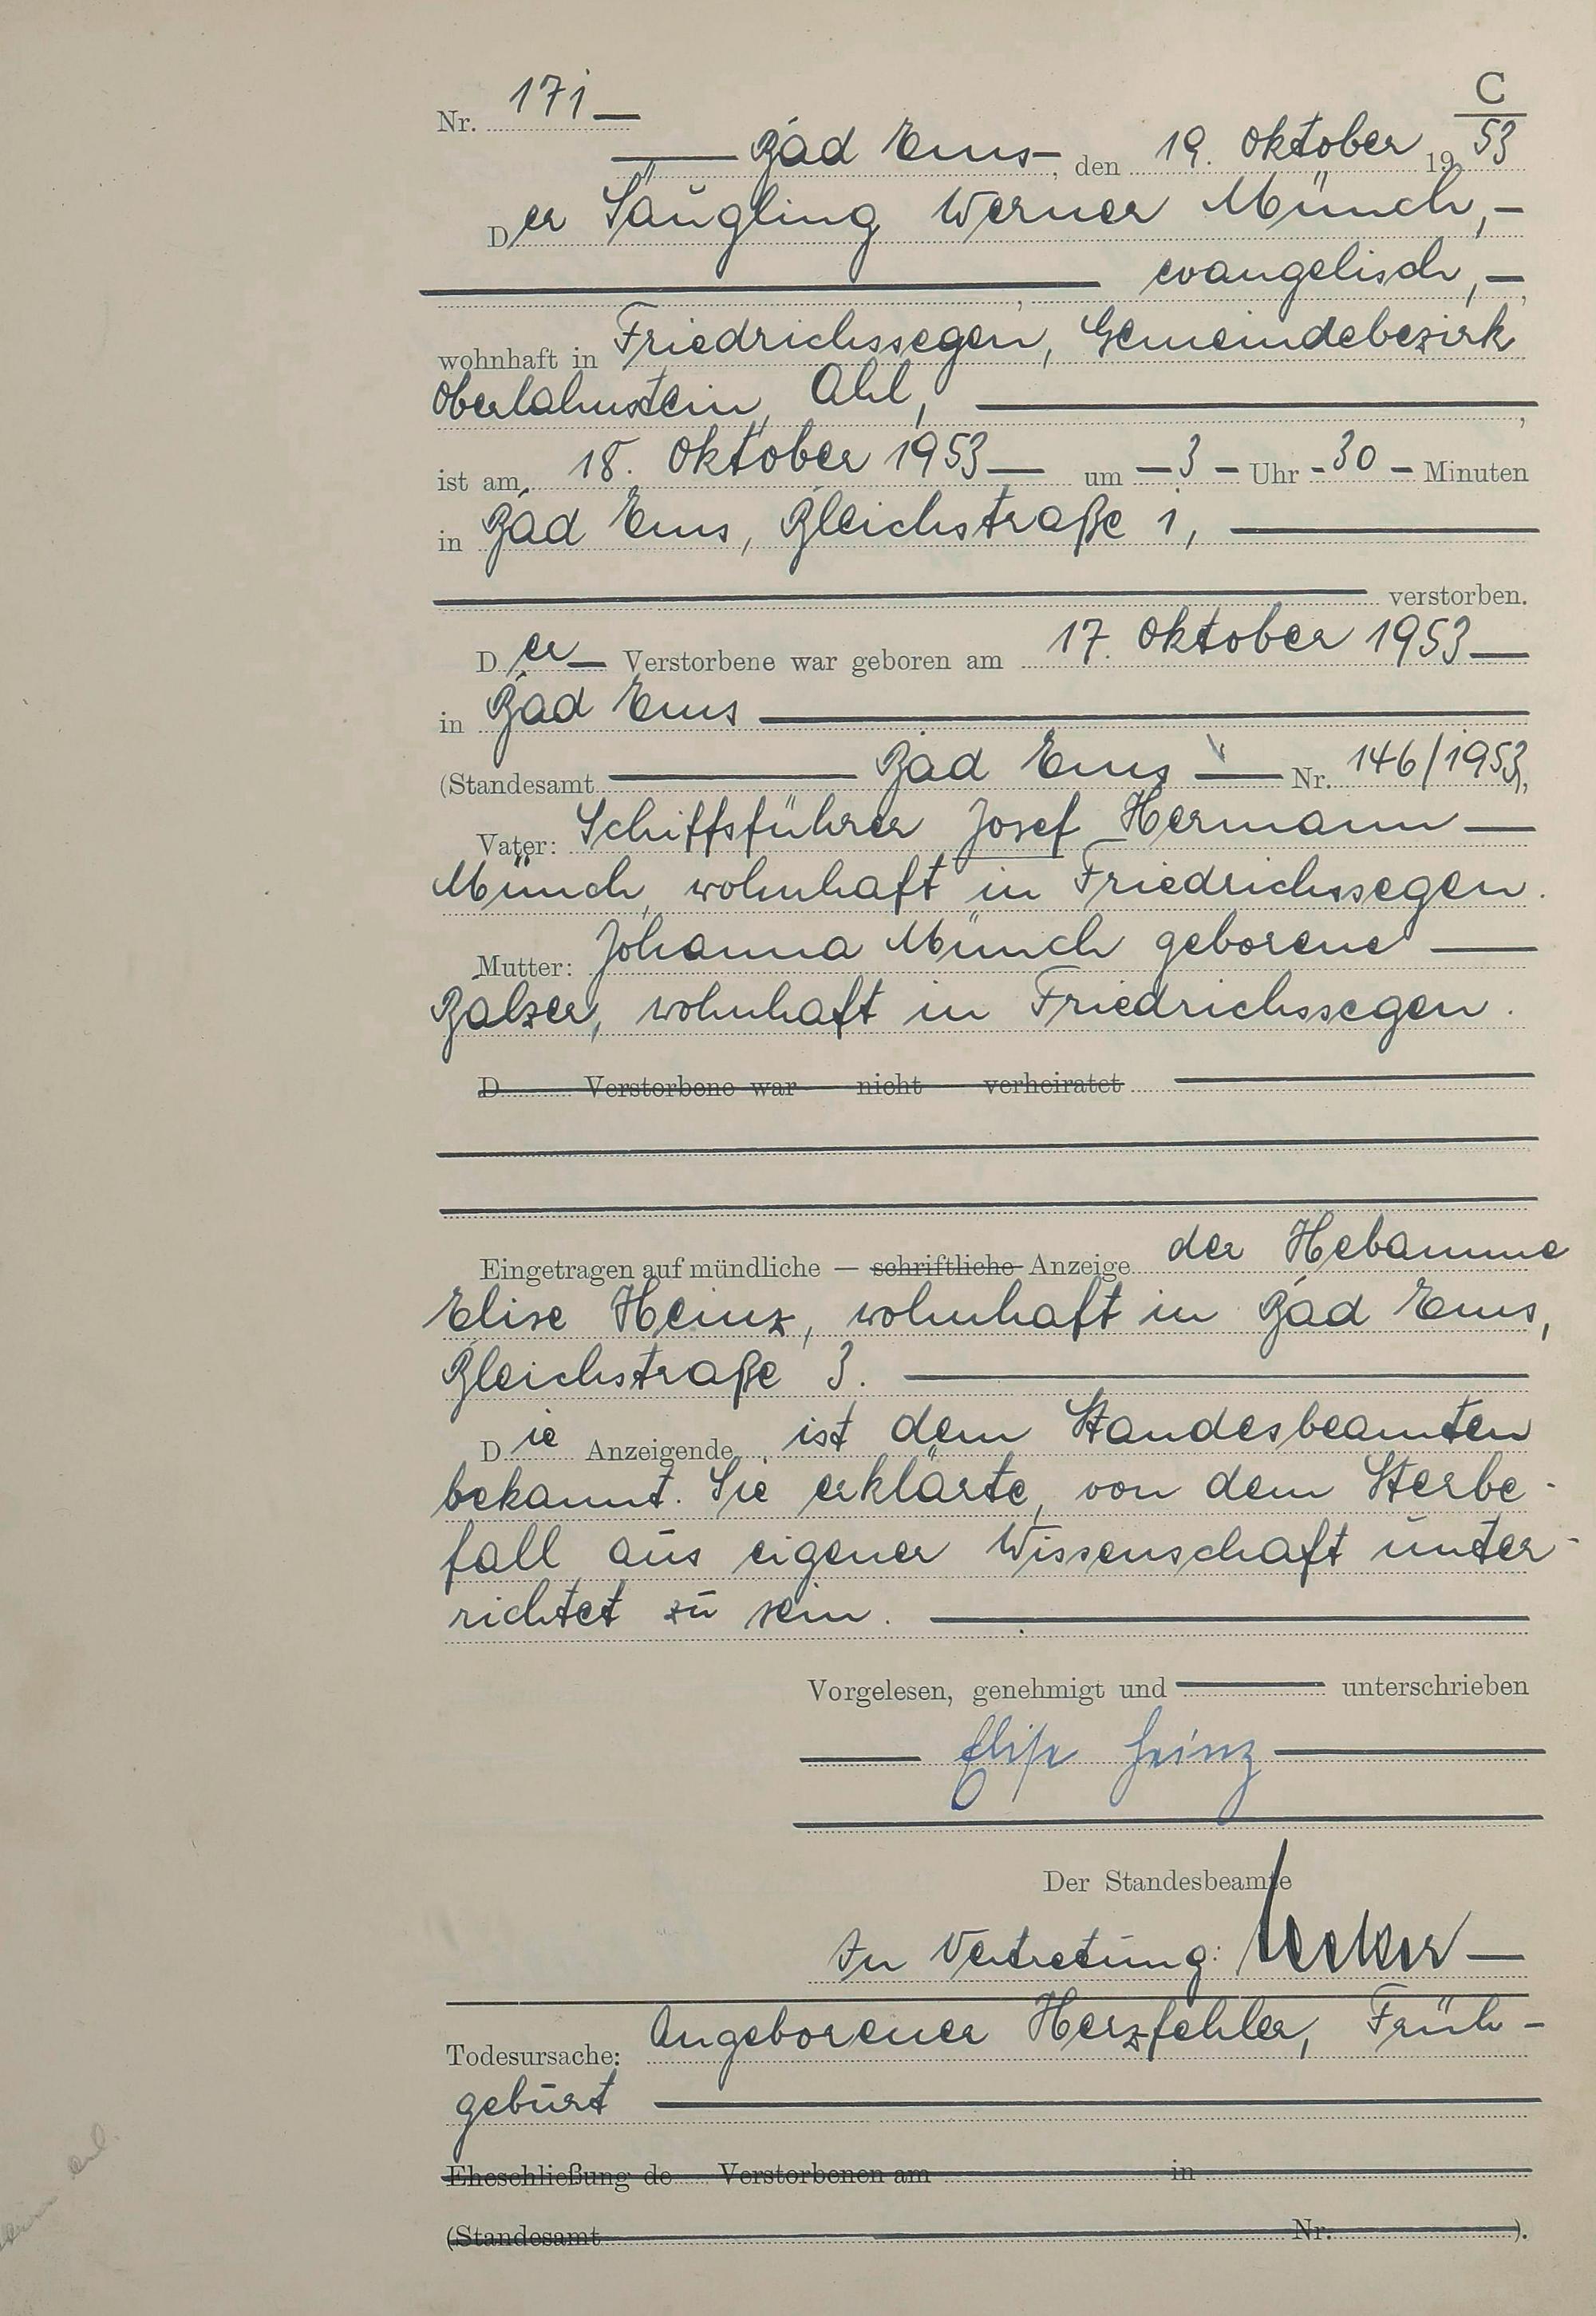 C
Nr. 171
Bad Ems, den 19. Oktober 1953
Der Säugling Werner Münch,
evangelisch,
wohnhaft in Friedrichssegen, Gemeindebezirk
Oberlahnstein, Ahl,
ist am 18. Oktober 1953 um 3 Uhr 30 Minuten
in Bad Ems, Bleichstraße 1,
verstorben.
Der Verstorbene war geboren am 17. Oktober 1953
in Bad Ems
(Standesamt Bad Ems Nr. 146/1953),
Vater: Schiffsführer Josef Hermann
Münch, wohnhaft in Friedrichssegen.
Mutter: Johanna Münch geborene
Balzer, wohnhaft in Friedrichssegen.
D Verstorbene war nicht verheiratet
Eingetragen auf mündliche — schriftliche Anzeige der Hebamme
Elise Heinz, wohnhaft in Bad Ems,
Bleichstraße 3.
Die Anzeigende ist dem Standesbeamten
bekannt. Sie erklärte, von dem Sterbe-
fall aus eigener Wissenschaft unter-
richtet zu sein.
Vorgelesen, genehmigt und unterschrieben
Elise Heinz
Der Standesbeamte
In Vertretung:
Todesursache: Angeborener Herzfehler, Früh-
geburt
Eheschließung de Verstorbenen am in
(Standesamt Nr. ).